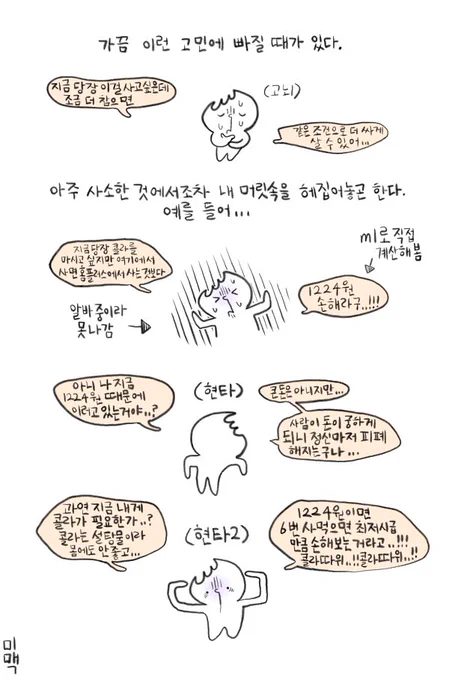 가끔 이런 고민에 빠질 때가 있다.
지금 당장 이걸 사고싶은데
조금 더 참으면
(고뇌)
같은 조건으로 더 싸게
살 수 있어...
아주 사소한 것에서조차 내 머릿속을 헤집어놓곤 한다.
예를 들어...
지금당장 콜라를
마시고 싶지만 여기에서
사면 홈플러스에서 사는것보다
ml로 직접
계산해봄
1224원
손해라구..!!!
알바중이라
못나감
아니 나 지금
1224원 때문에
이러고 있는거야..?
(현타)
큰 돈은 아니지만...
사람이 돈이 궁하게
되니 정신마저 피폐
해지는구나...
과연 지금 내게
콜라가 필요한가..?
콜라는 설탕물이라
몸에도 안 좋고...
(현타2)
1224원이면
6번 사먹으면 최저시급
만큼 손해보는거라고..!!!
콜라따위..!!콜라따위..!!
미
맥